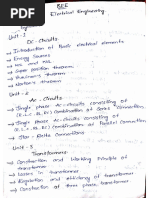 BEE
Electrical Engineering
Unit-1
DC-Circuits
→ Introduction of Basic electrical elements
→ Energy Sources
→ KCL and KVL
→ Super position theorem
→ Thevinin's theorem
→ Norton's theorem
Unit-2
Ac-Circuits
→ Single phase Ac-circuits consisting of
(R, L, C, RL, RC, RLC) Combination of Series Connection
→ Single phase Ac-circuits consisting of
(R, L, C, RL, RC, RLC) Combination of Parallel Connection
→ Star-Delta Connections
Unit-3
Transformers:-
→ Construction and Working Principle of
Transformer
→ Losses in Transformer
→ Regulation and efficiency of transformer
→ Construction of three phase transformer